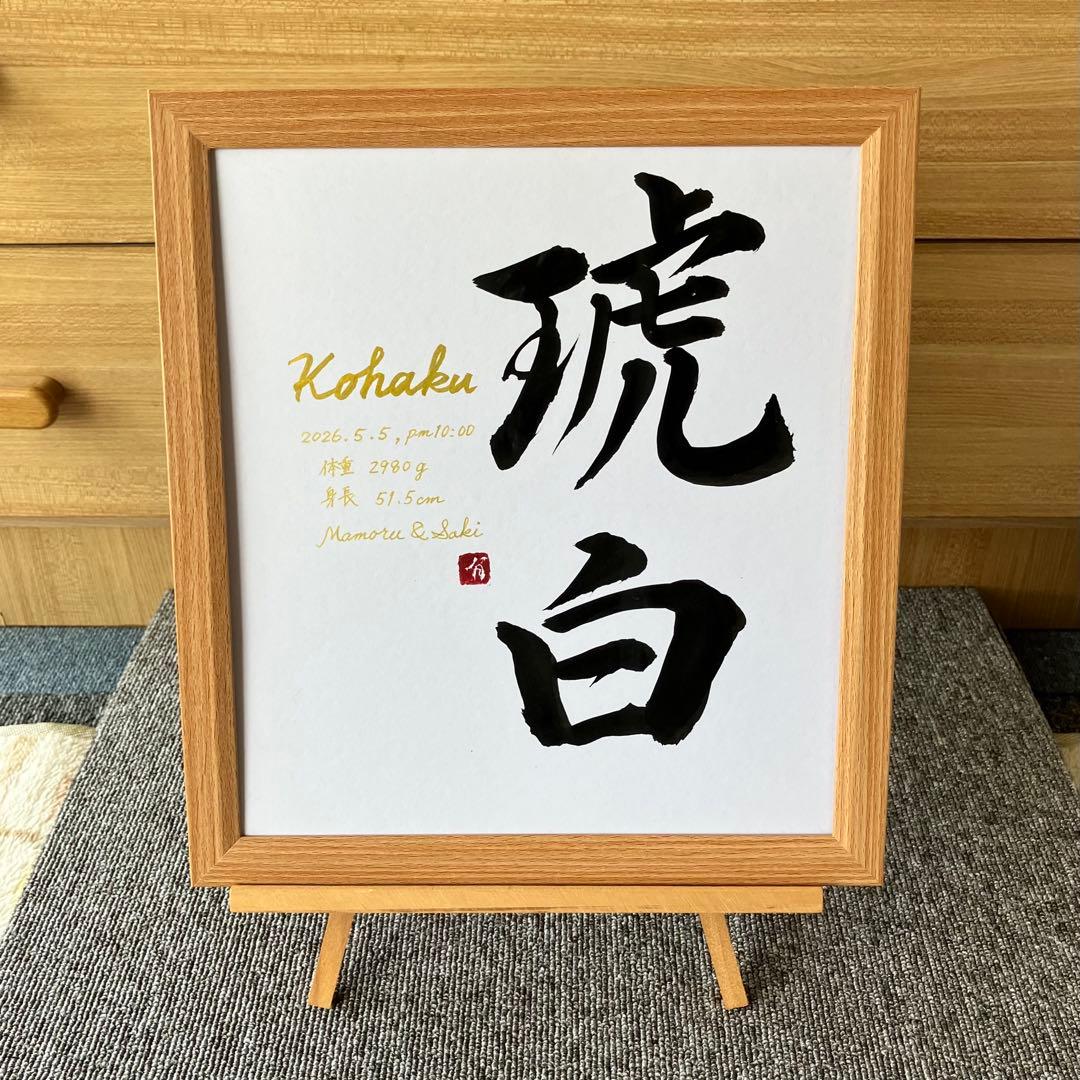 琥白
Kohaku
2026.5.5, pm10:00
体重 2980g
身長 51.5cm
Mamoru & Saki